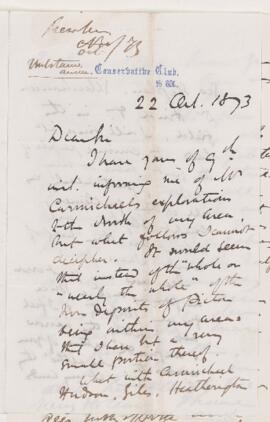 Conservative Club,
22 Oct. 1873
Dear Sir
I have yours of 9th
inst. informing me of Mr
Carmichael's explorations
to the North of my area,
but what follows I cannot
decipher. It would seem
that instead of the "whole or
"nearly the whole" of the
Iron Deposits of Pictou
being within my areas
that I have but a very
small portion thereof.
What with Carmichael
Hudson, Giles, Hetherington